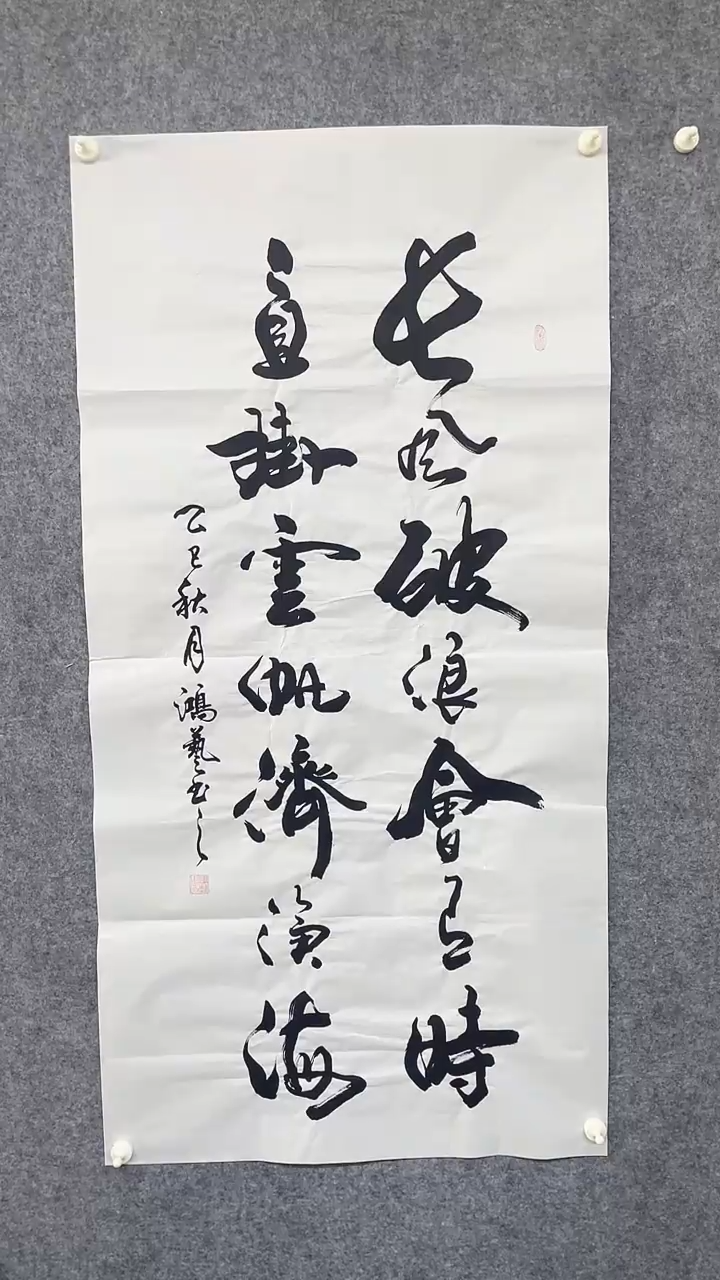 長風破浪會有時
直掛雲帆濟滄海
乙巳秋月鴻藝書之